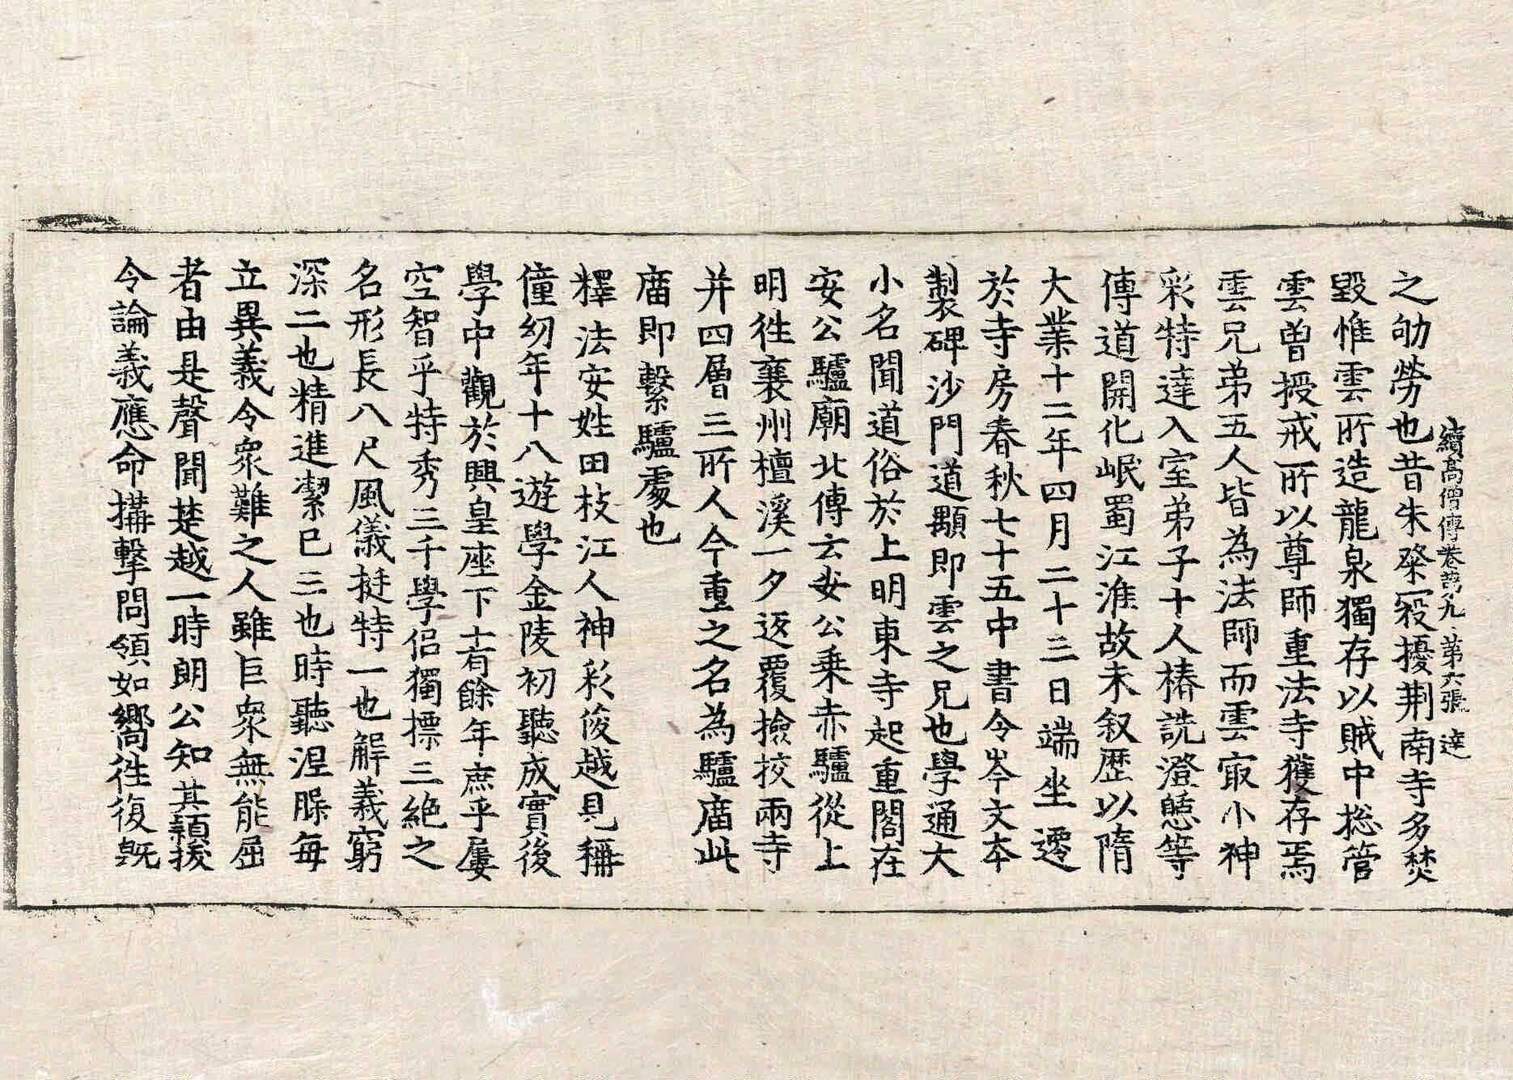 續高僧傳卷第九 第六張 達
之劬勞也昔朱粲寇擾荆南寺多焚
毀惟雲所造龍泉獨存以賊中捴管
雲曽授戒所以尊師重法寺獲存焉
雲兄弟五人皆為法師而雲㝡小神
彩特達入室弟子十人椿詵澄憇等
傳道開化岷蜀江淮故未叙歷以隋
大業十二年四月二十三日端坐遷
於寺房春秋七十五中書令岑文本
製碑沙門道顒即雲之兄也學通大
小名聞道俗於上明東寺起重閣在
安公驢廟北傳云安公乗赤驢從上
明徃襄州檀溪一夕返覆撿挍兩寺
并四層三所人今重之名為驢庿此
庿即繫驢處也
釋法安姓田枝江人神彩俊越見稱
僮幼年十八遊學金陵初聽成實後
學中觀於興皇座下十有餘年庶乎屢
空智乎特秀三千學侶獨標三絶之
名形長八尺風儀挺特一也解義窮
深二也精進潔已三也時聽涅槃每
立異義令衆難之人雖巨衆無能屈
者由是聲聞楚越一時朗公知其穎拔
令論義應命構擊問領如嚮徃復旣